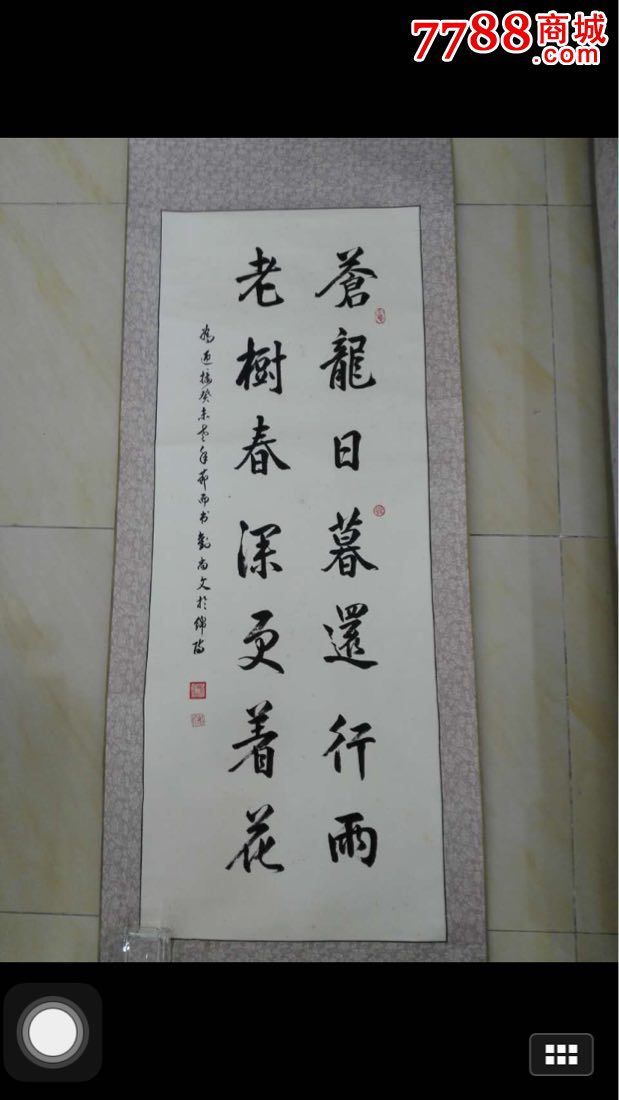 7788商城
.com
蒼龍日暮還行雨
老樹春深更着花
癸未
书刘尚文於绵陽